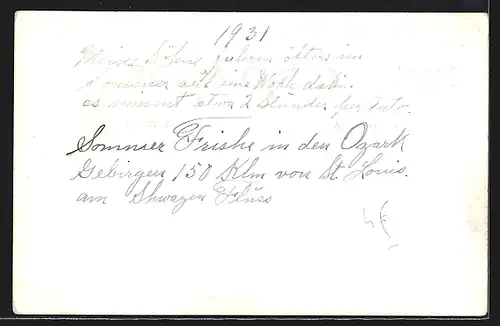 1931
Meine Söhne fahren öfters im
Sommer auf eine Woche dahin
es nimmt etwa 2 Stunden per Auto.
Sommer Frishe in den Ozark
Gebirgen 150 Klm von St. Louis.
am Shwazen Fluss